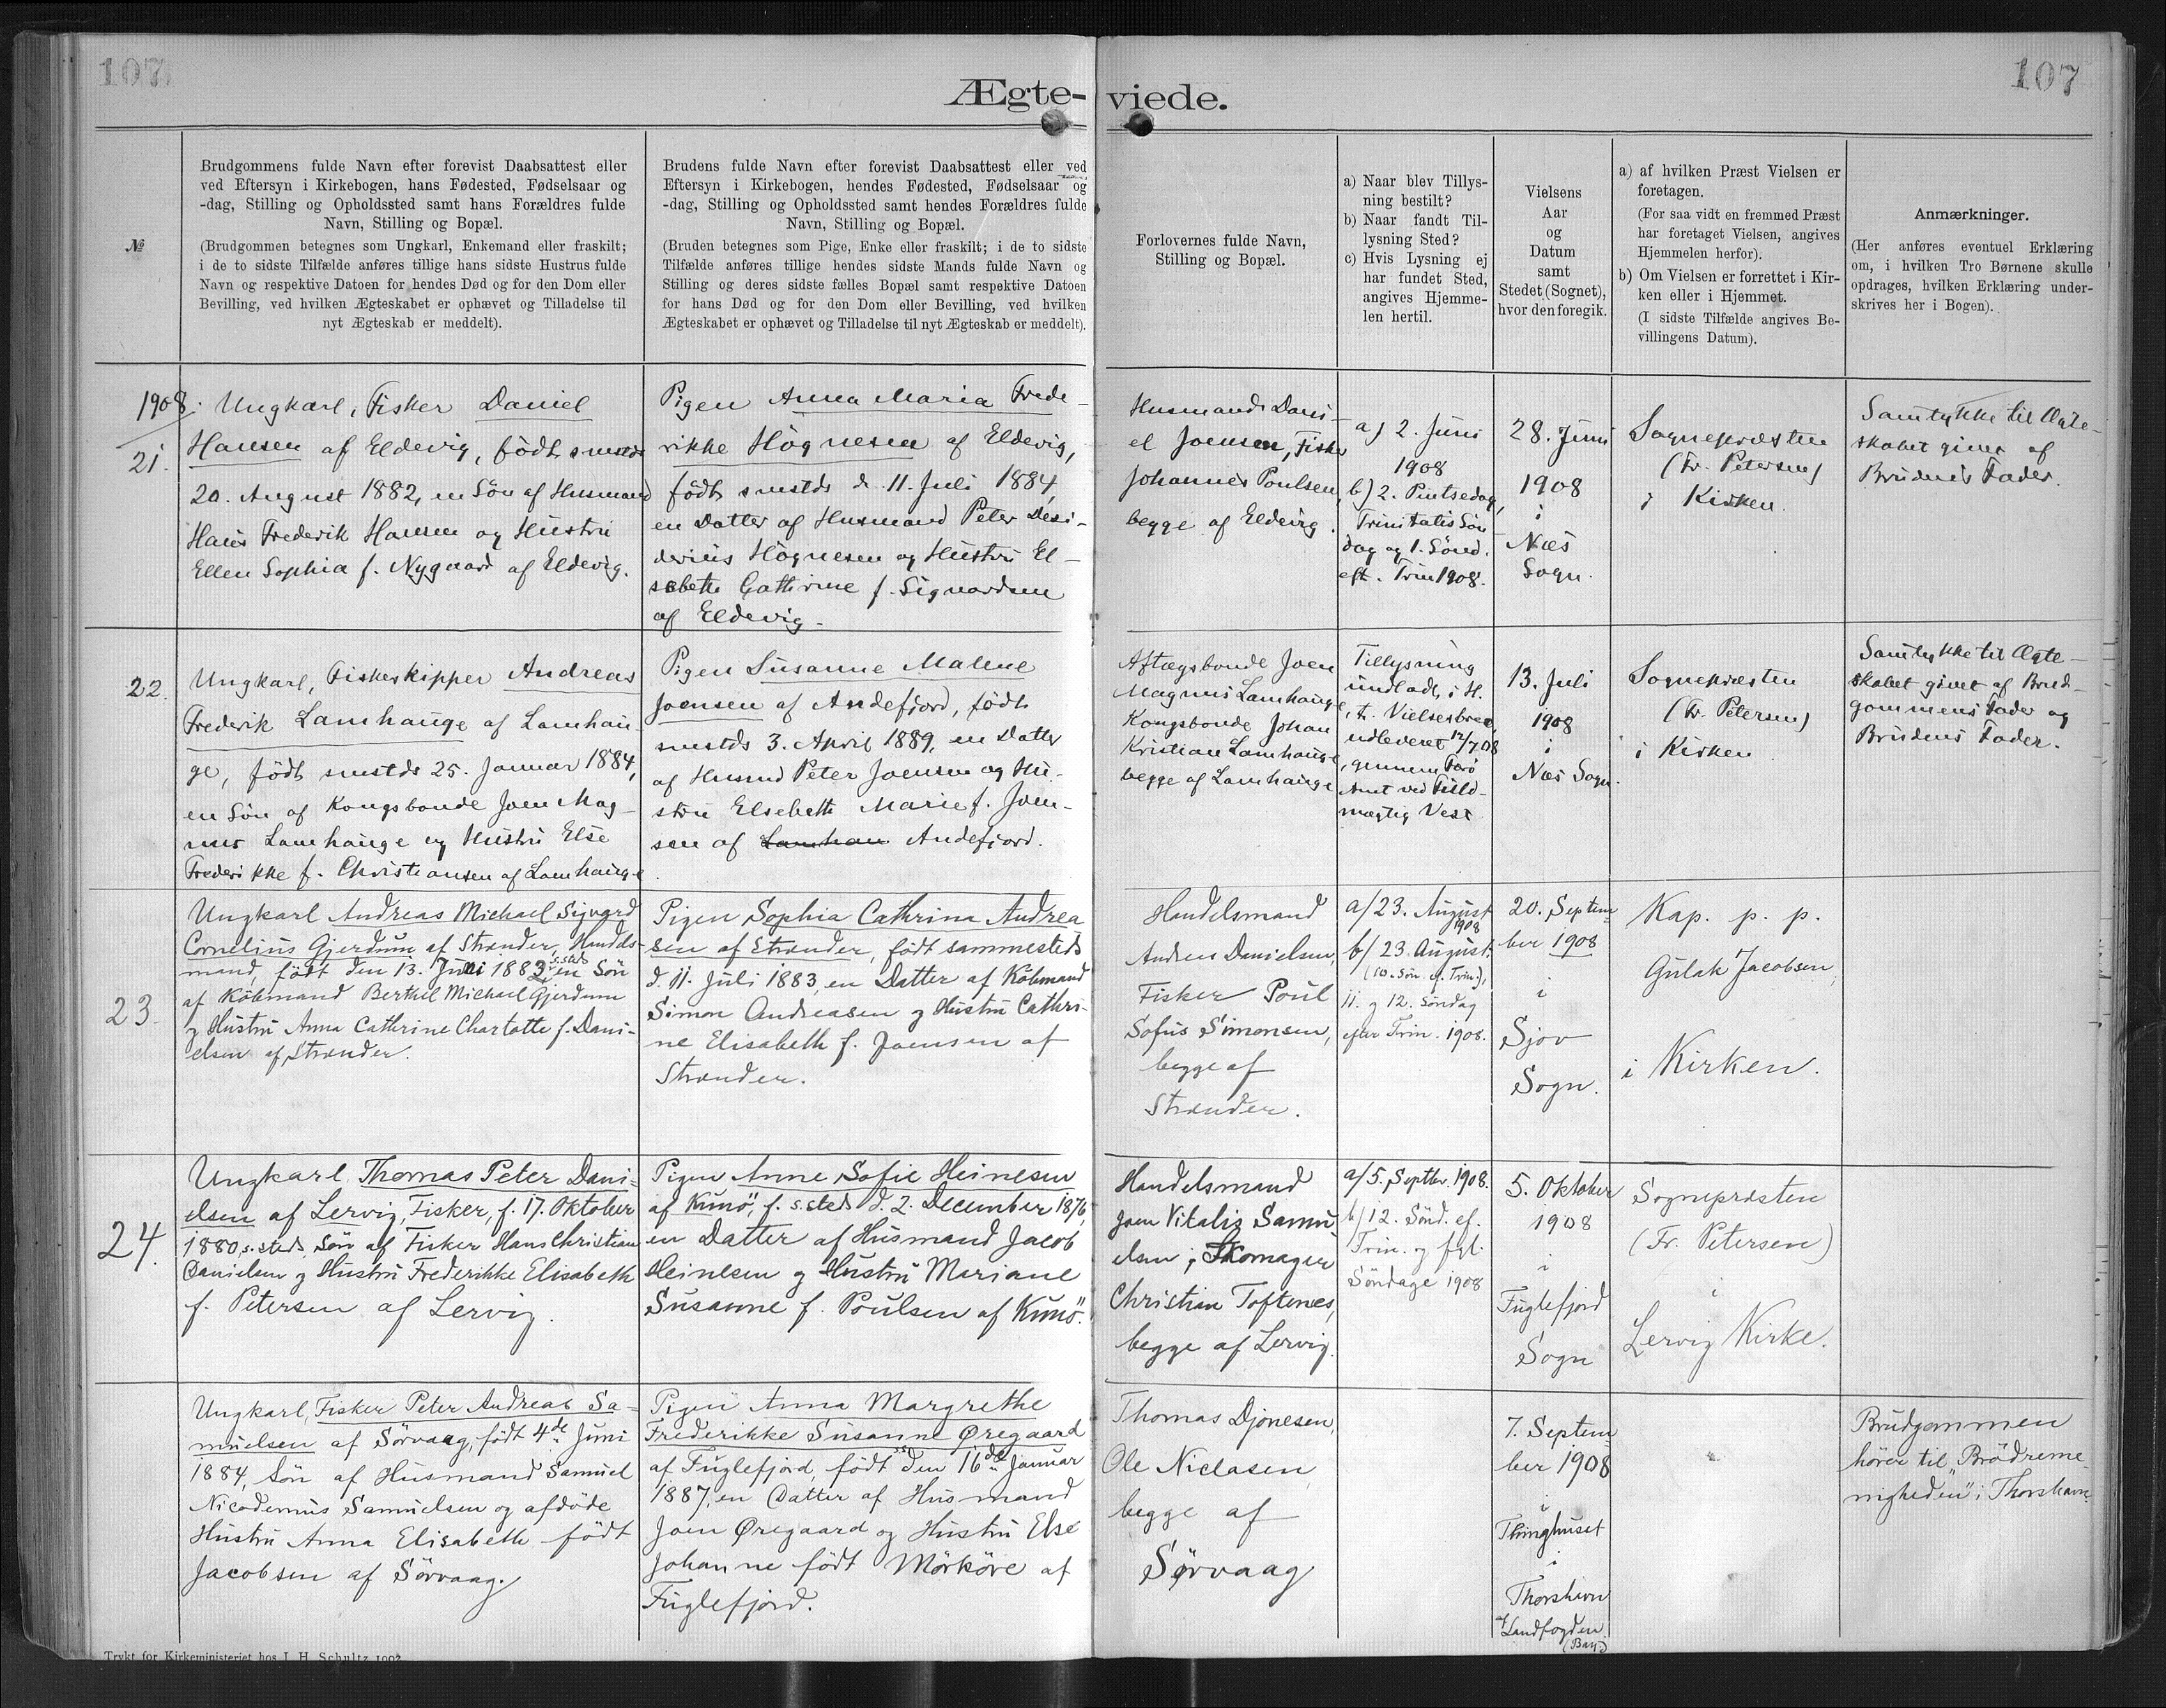 107
107
Ægte-viede.
№
Brudgommens fulde Navn efter forevist Daabsattest eller
ved Eftersyn i Kirkebogen, hans Fødested, Fødselsaar og
-dag, Stilling og Opholdssted samt hans Forældres fulde
Navn, Stilling og Bopæl.
(Brudgommen betegnes som Ungkarl, Enkemand eller fraskilt;
i de to sidste Tilfælde anføres tillige hans sidste Hustrus fulde
Navn og respektive Datoen for hendes Død og for den Dom eller
Bevilling, ved hvilken Ægteskabet er ophævet og Tilladelse til
nyt Ægteskab er meddelt).
Brudens fulde Navn efter forevist Daabsattest eller ved
Eftersyn i Kirkebogen, hendes Fødested, Fødselsaar og
-dag, Stilling og Opholdssted samt hendes Forældres fulde
Navn, Stilling og Bopæl.
(Bruden betegnes som Pige, Enke eller fraskilt; i de to sidste
Tilfælde anføres tillige hendes sidste Mands fulde Navn og
Stilling og deres sidste fælles Bopæl samt respektive Datoen
for hans Død og for den Dom eller Bevilling, ved hvilken
Ægteskabet er ophævet og Tilladelse til nyt Ægteskab er meddelt).
Forlovernes fulde Navn,
Stilling og Bopæl.
a) Naar blev Tillys-
ning bestilt?
b) Naar fandt Til-
lysning Sted?
c) Hvis Lysning ej
har fundet Sted,
angives Hjemme-
len hertil.
Vielsens
Aar
og
Datum
samt
Stedet (Sognet),
hvor den foregik.
a) af hvilken Præst Vielsen er
foretagen.
(For saa vidt en fremmed Præst
har foretaget Vielsen, angives
Hjemmelen herfor).
b) Om Vielsen er forrettet i Kir-
ken eller i Hjemmet.
(I sidste Tilfælde angives Be-
villingens Datum).
Anmærkninger.
(Her anføres eventuel Erklæring
om, i hvilken Tro Børnene skulle
opdrages, hvilken Erklæring under-
skrives her i Bogen).
1908.
21.
Ungkarl, Fisker Daniel
Hansen af Eldevig, født smstds
20. August 1882, en Søn af Husmand
Hans Frederik Hansen og Hustru
Ellen Sophia f. Nygaard af Eldevig.
Pigen Anna Maria Frede-
rikke Högnesen af Eldevig,
født smstds d. 11. Juli 1884,
en Datter af Husmand Peter Desi-
derius Högnesen og Hustru El-
sebeth Cathrine f. Sigvardsen
af Eldevig.
Husmand Dani-
el Joensen, Fisker
Johannes Poulsen,
begge af Eldevig.
a) 2. Juni
1908
b) 2. Pintsedag,
Trinitatis Søn
dag og 1. Sønd.
eft. Trin 1908.
28. Juni
1908
i
Næs
Sogn.
Sognepræsten
(Fr. Petersen)
i Kirken.
Samtykke til Ægte-
skabet givet af
Brudens Fader.
22.
Ungkarl, Fiskeskipper Andreas
Frederik Lamhauge af Lamhau-
ge, født smstds 25. Januar 1884,
en Søn af Kongsbonde Joen Mag-
nus Lamhauge og Hustru Else
Frederikke f. Christiansen af Lamhauge
Pigen Susanne Malene
Joensen af Andefjord, født
smstds 3. April 1889, en Datter
af Husmd Peter Joensen og Hu-
stru Elsebeth Marie f. Joen-
sen af Lamhau Andefjord.
Aftægsbonde Joen
Magnus Lamhauge,
Kongsbonde Johan
Kristian Lamhauge
begge af Lamhauge
Tillysning
undladt, i H.
t. Vielsesbrev,
udleveret 12/7 08
gennem Færö
Amt ved Fuld-
mægtig Vest
13. Juli
1908
i
Næs Sogn.
Sognepræsten
(Fr. Petersen)
i Kirken
Samtykke til Ægte-
skabet givet af Brud-
gommens Fader og
Brudens Fader.
23.
Ungkarl Andreas Michael Sigvard
Cornelius Gjerdum af Strænder, Handels-
mand, født den 13. Juni 1883 s.steds en Søn
af Købmand Berthel Michael Gjerdum
og Hustru Anna Cathrine Charlotte f. Dani-
elsen af Strænder.
Pigen Sophia Cathrina Andrea
sen af Strænder, født sammesteds
d. 11. Juli 1883, en Datter af Købmand
Simon Andreasen og Hustru Cathri-
ne Elisabeth f. Joensen af
Strænder.
Handelsmand
Andreas Danielsen,
Fisker Poul
Sofus Simonsen,
begge af
Strænder.
a/ 23. August
1908
b/ 23 August.
(10. Søn. e. Trin.),
11. og 12. Søndag
efter Trin. 1908.
20. Septem
ber 1908
i
Sjov
Sogn.
Kap. p. p.
Gulak Jacobsen,
i Kirken.
24.
Ungkarl Thomas Peter Dani-
elsen af Lervig, Fisker, f. 17. Oktober
1880 s.steds, Søn af Fisker Hans Christian
Danielsen og Hustru Frederikke Elisabeth
f. Petersen af Lervig.
Pigen Anne Sofie Heinesen
af Kunö, f. s.steds d. 2. December 1876,
en Datter af Husmand Jacob
Heinesen og Hustru Mariane
Susanne f. Poulsen af Kunö.
Handelsmand
Joen Vitalis Samu
elsen, Skomager
Christian Toftenes,
begge af Lervig.
a/ 5. Septbr. 1908.
b/ 12. Sönd. ef.
Trin. og fgl.
Söndage 1908
5. Oktober
1908
i
Fuglefjord
Sogn
Sognepræsten
(Fr. Petersen)
i
Lervig Kirke.
Ungkarl, Fisker Peter Andreas Sa-
muelsen af Sörvaag, født 4de Juni
1884, Søn af Husmand Samuel
Nicodemus Samuelsen og afdöde
Hustru Anna Elisabeth født
Jacobsen af Sörvaag.
Pigen Anna Margrethe
Frederikke Susanne Øregaard
af Fuglefjord, født ss den 16de Januar
1887, en Datter af Husmand
Joen Øregaard og Hustru Else
Johanne født Mörköre af
Fuglefjord.
Thomas Djonesen,
Ole Niclasen,
begge af
Sørvaag
7. Septem
ber 1908
i
Thinghuset
i
Thorshavn
af Landfogden
Brudgommen
hörer til "Brödreme-
nigheden" i Thorshavn.
Trykt for Kirkeministeriet hos I. H. Schultz 1902